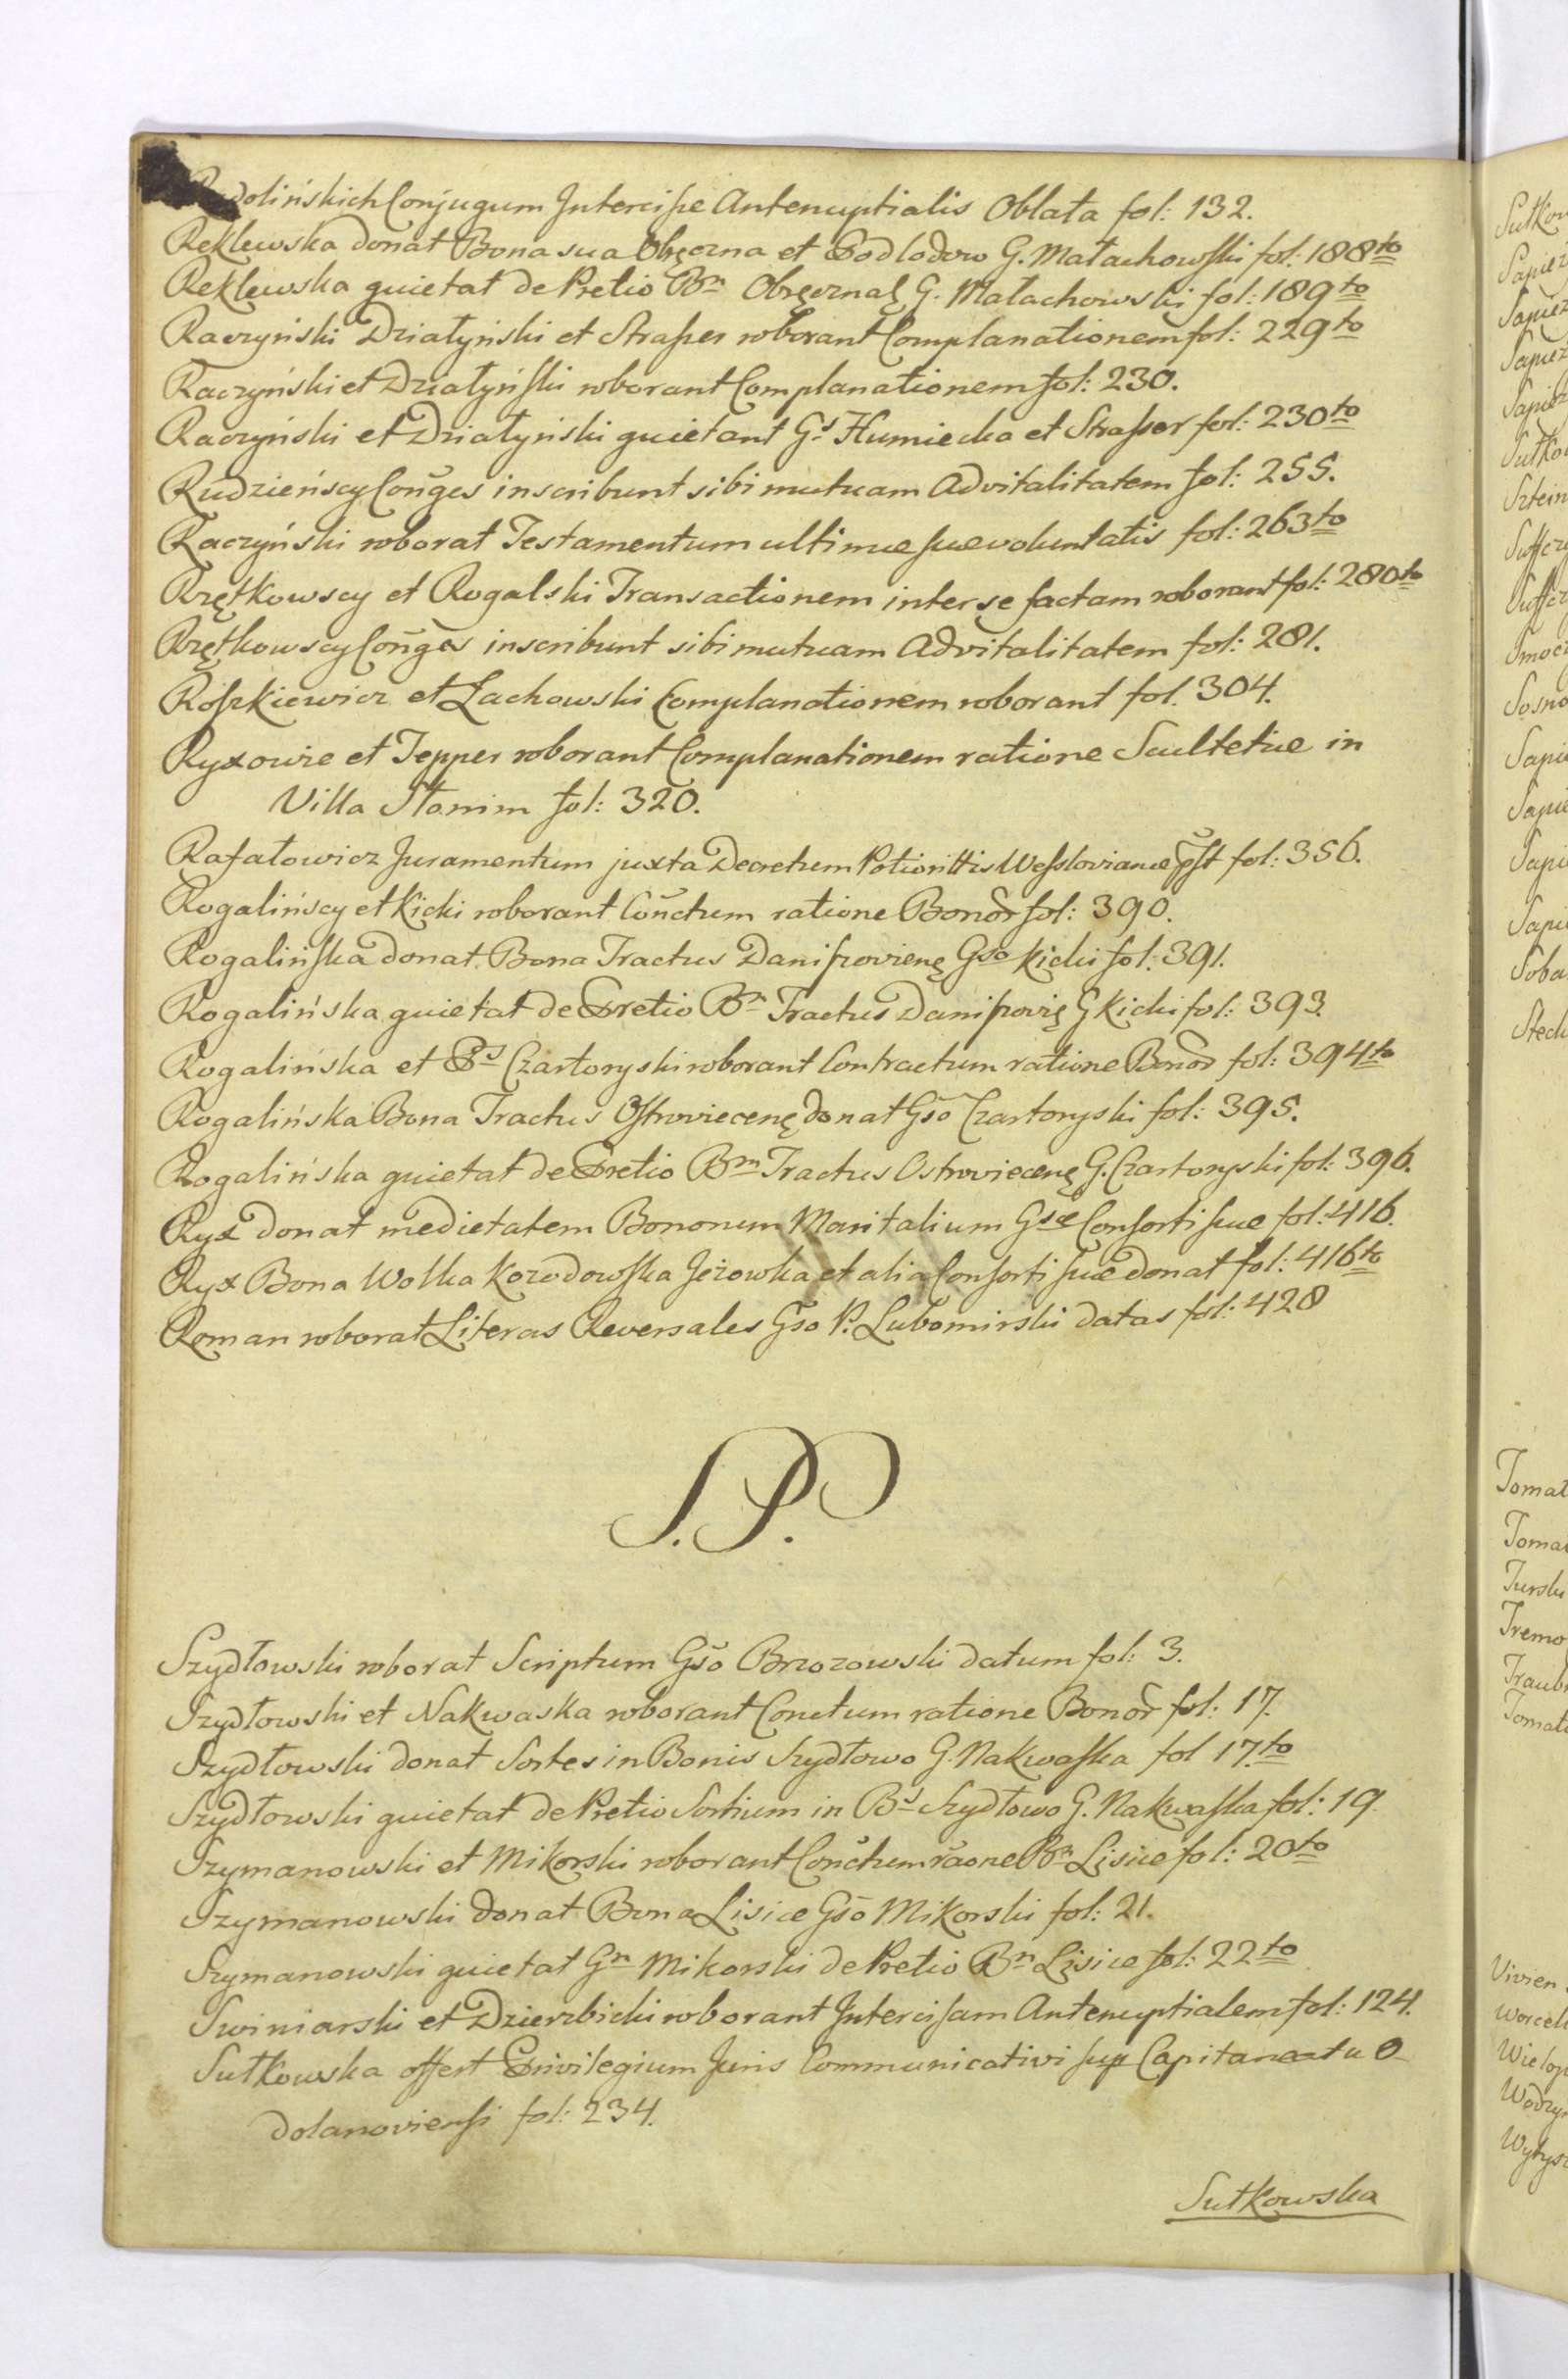 Radolińskich Conjugum Intercisæ Antenuptialis Oblata fol: 132.
Reklewska donat Bona sua Obręczna et Podlodow G. Małachowski fol: 188to
Reklewska quietat de Pretio Bn Obręcznaę G. Małachowski fol: 189to
Raczyński Działyński et Strasser roborant Complanationem fol: 229to
Raczyński et Działyński roborant Complanationem fol: 230.
Raczyński et Działyński quietant Gs Humiecka et Strasser fol: 230to
Rudzieńscy Coñges inscribunt sibi mutuam Advitalitatem fol: 255.
Raczyński roborat Testamentum ultimæ suæ voluntatis fol: 263to
Rzętkowscy et Rogalski Transactionem inter se factam roborant fol: 280to
Rzętkowscy Coñges inscribunt sibi mutuam Advitalitatem fol: 281.
Roszkiewicz et Lachowski Complanationem roborant fol. 304.
Ryxowie et Tepper roborant Complanationem ratione Scultetiæ in
Villa Stanim fol: 320.
Rafałowicz Juramentum juxta Decretum Potiorittis Wesslovianæ fol: 356.
Rogalińscy et Kicki roborant Coñctum ratione Bonor fol: 390.
Rogalińska donat Bona Tractus Daniszovienę Gso Kicki fol: 391.
Rogalińska quietat de Pretio Bn Tractus Daniszovię G Kicki fol: 393.
Rogalińska et Ps Czartoryski roborant Contractum ratione Bonor fol: 394to
Rogalińska Bona Tractus Ostroviecenę donat Gso Czartoryski fol: 395.
Rogalińska quietat de Pretio Bm Tractus Ostroviecenę G. Czartoryski fol: 396.
Ryx donat medietatem Bonorum Maritalium Gsæ Consorti suæ fol: 416.
Ryx Bona Wolka Kozodowska Jeżowka et alia Consorti suæ donat fol: 416to
Roman roborat Literas Reversales Gso P. Lubomirski datas fol: 428
S. P.
Szydłowski roborat Scriptum Gso Brzozowski datum fol: 3.
Szydłowski et Nakwaska roborant Conctum ratione Bonor fol: 17.
Szydłowski donat Sortes in Bonis Szydłowo G. Nakwaska fol 17to
Szydłowski quietat de Pretio Sortium in Bs Szydłowo G. Nakwaska fol: 19.
Szymanowski et Mikorski roborant Coñctum raõne Bn Lisice fol: 20to
Szymanowski donat Bona Lisice Gso Mikorski fol: 21.
Szymanowski quietat Gn Mikorski de Pretio Bn Lisice fol: 22to
Swiniarski et Dzierzbicki roborant Intercisam Antenuptialem fol: 124.
Sułkowska offert Privilegium Juris Communicativi sup Capitaneatu O-
dolanoviensi fol: 234.
Sułkowska
Sułkow
Tomat
Tomat
Turski
Tremo
Traub
Tomat
Vivien
Worcel
Wielop
Wodzy